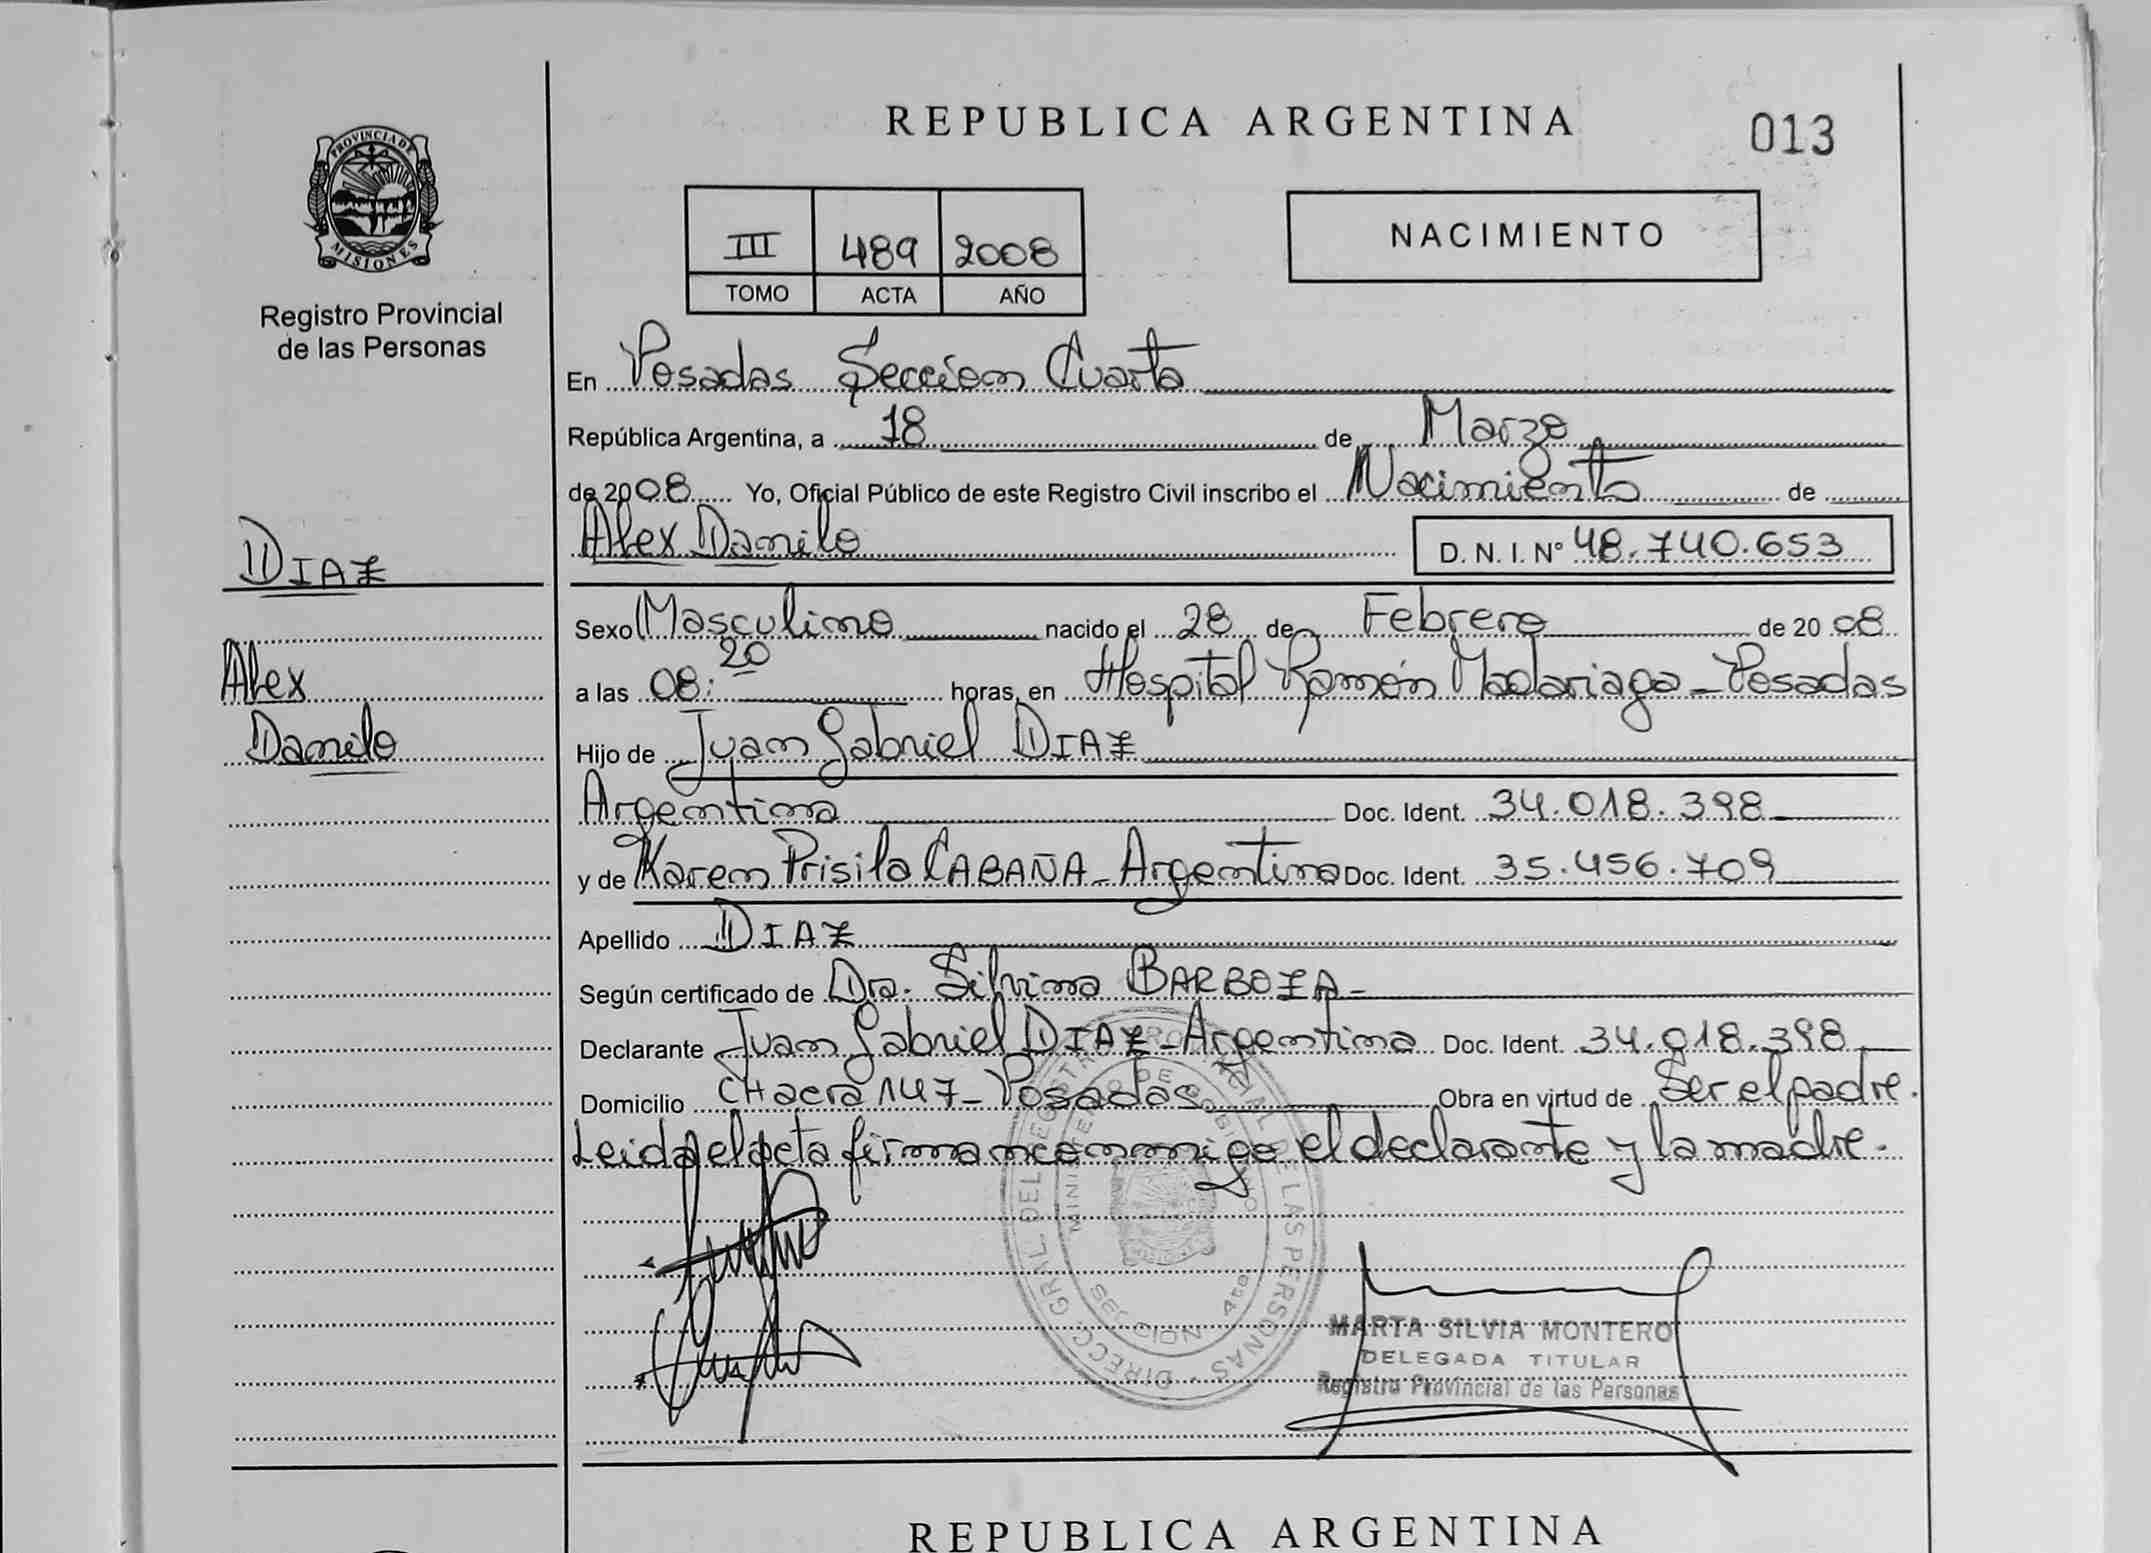 REPUBLICA ARGENTINA
013
PROVINCIA DE
MISIONES
Registro Provincial
de las Personas
III 489 2008
TOMO ACTA AÑO
NACIMIENTO
En Posadas Sección Cuarta
República Argentina, a 18 de Marzo
de 2008 Yo, Oficial Público de este Registro Civil inscribo el Nacimiento de
Alex Danilo D. N. I. Nº 48.740.653
DIAZ
Alex
Danilo
Sexo Masculino nacido el 28 de Febrero de 2008
a las 08:20 horas, en Hospital Ramón Madariaga - Posadas
Hijo de Juan Gabriel DIAZ
Argentina Doc. Ident. 34.018.398
y de Karen Prisila CABAÑA - Argentina Doc. Ident. 35.456.709
Apellido DIAZ
Según certificado de Dra. Silvina BARBOZA -
Declarante Juan Gabriel DIAZ - Argentina Doc. Ident. 34.018.398
Domicilio CHacra 147 - Posadas Obra en virtud de Ser el padre.
Leida el acta firman conmigo el declarante y la madre.
DIRECC. GRAL. DEL REGISTRO PROVINCIAL DE LAS PERSONAS
MINISTERIO DE GOBIERNO
SECCION 4ta
MARTA SILVIA MONTERO
DELEGADA TITULAR
Registro Provincial de las Personas
REPUBLICA ARGENTINA